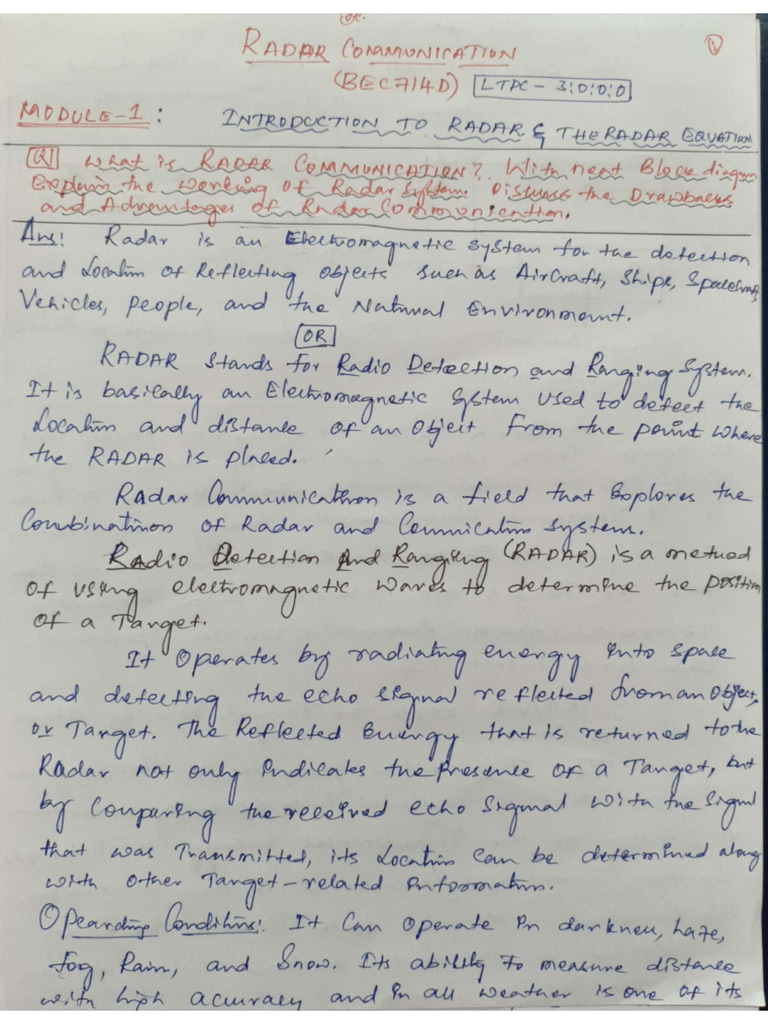 RADAR COMMUNICATION
(BEC714D) LTPC - 3:0:0:0
MODULE-1: INTRODUCTION TO RADAR & THE RADAR EQUATION
Q1 What is RADAR COMMUNICATION? With neat Block diagram
Explain the working of Radar System. Discuss the Drawbacks
and Advantages of Radar Communication.
Ans: Radar is an Electromagnetic System for the detection
and Location of Reflecting Objects such as AirCraft, Ships, SpaceCraft,
Vehicles, people, and the Natural Environment.
OR
RADAR Stands for Radio Detection and Ranging System.
It is basically an Electromagnetic System used to detect the
Location and distance of an Object from the point where
the RADAR is placed.
Radar Communication is a field that Explores the
Combination of Radar and Communication Systems.
Radio Detection And Ranging (RADAR) is a method
of using electromagnetic waves to determine the position
of a Target.
It Operates by radiating energy into space
and detecting the echo signal reflected from an Object,
or Target. The Reflected Energy that is returned to the
Radar not only indicates the presence of a Target, but
by Comparing the received echo signal with the signal
that was Transmitted, its Location Can be determined along
with other Target-related information.
Operating Conditions: It Can Operate in darkness, haze,
fog, Rain, and Snow. Its ability to measure distance
with high accuracy and in all weather is one of its